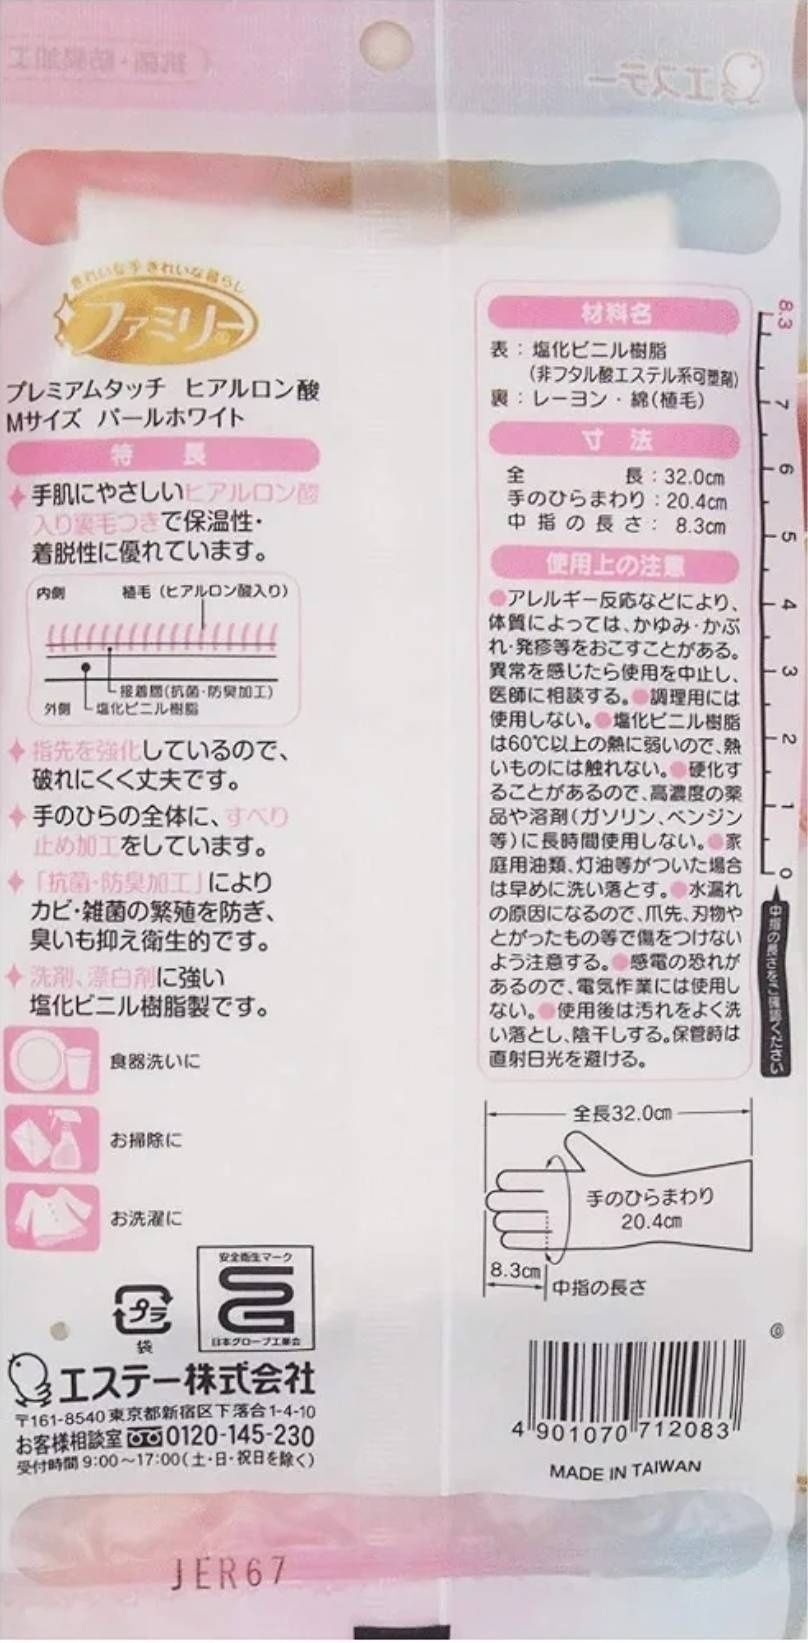 抗菌・防臭加工
エステー
きれいな手 きれいな暮らし
ファミリー®
プレミアムタッチ ヒアルロン酸
Mサイズ パールホワイト
特長
手肌にやさしいヒアルロン酸
入り裏毛つきで保温性・
着脱性に優れています。
内側 植毛(ヒアルロン酸入り)
接着層(抗菌・防臭加工)
外側 塩化ビニル樹脂
指先を強化しているので、
破れにくく丈夫です。
手のひらの全体に、すべり
止め加工をしています。
「抗菌・防臭加工」により
カビ・雑菌の繁殖を防ぎ、
臭いも抑え衛生的です。
洗剤、漂白剤に強い
塩化ビニル樹脂製です。
食器洗いに
お掃除に
お洗濯に
プラ
袋
安全衛生マーク
SG
日本グローブ工業会
エステー株式会社
〒161-8540 東京都新宿区下落合1-4-10
お客様相談室 0120-145-230
受付時間 9:00~17:00(土・日・祝日を除く)
JER67
材料名
表:塩化ビニル樹脂
(非フタル酸エステル系可塑剤)
裏:レーヨン・綿(植毛)
寸法
全長:32.0cm
手のひらまわり:20.4cm
中指の長さ:8.3cm
使用上の注意
●アレルギー反応などにより、
体質によっては、かゆみ・かぶ
れ・発疹等をおこすことがある。
異常を感じたら使用を中止し、
医師に相談する。●調理用には
使用しない。●塩化ビニル樹脂
は60℃以上の熱に弱いので、熱
いものには触れない。●硬化す
ることがあるので、高濃度の薬
品や溶剤(ガソリン、ベンジン
等)に長時間使用しない。●家
庭用油類、灯油等がついた場合
は早めに洗い落とす。●水漏れ
の原因になるので、爪先、刃物や
とがったもの等で傷をつけない
よう注意する。●感電の恐れが
あるので、電気作業には使用し
ない。●使用後は汚れをよく洗
い落とし、陰干しする。保管時は
直射日光を避ける。
8.3
7
6
5
4
3
2
1
0
中指の長さをご確認ください
全長32.0cm
手のひらまわり
20.4cm
8.3cm
中指の長さ
4 901070 712083
MADE IN TAIWAN